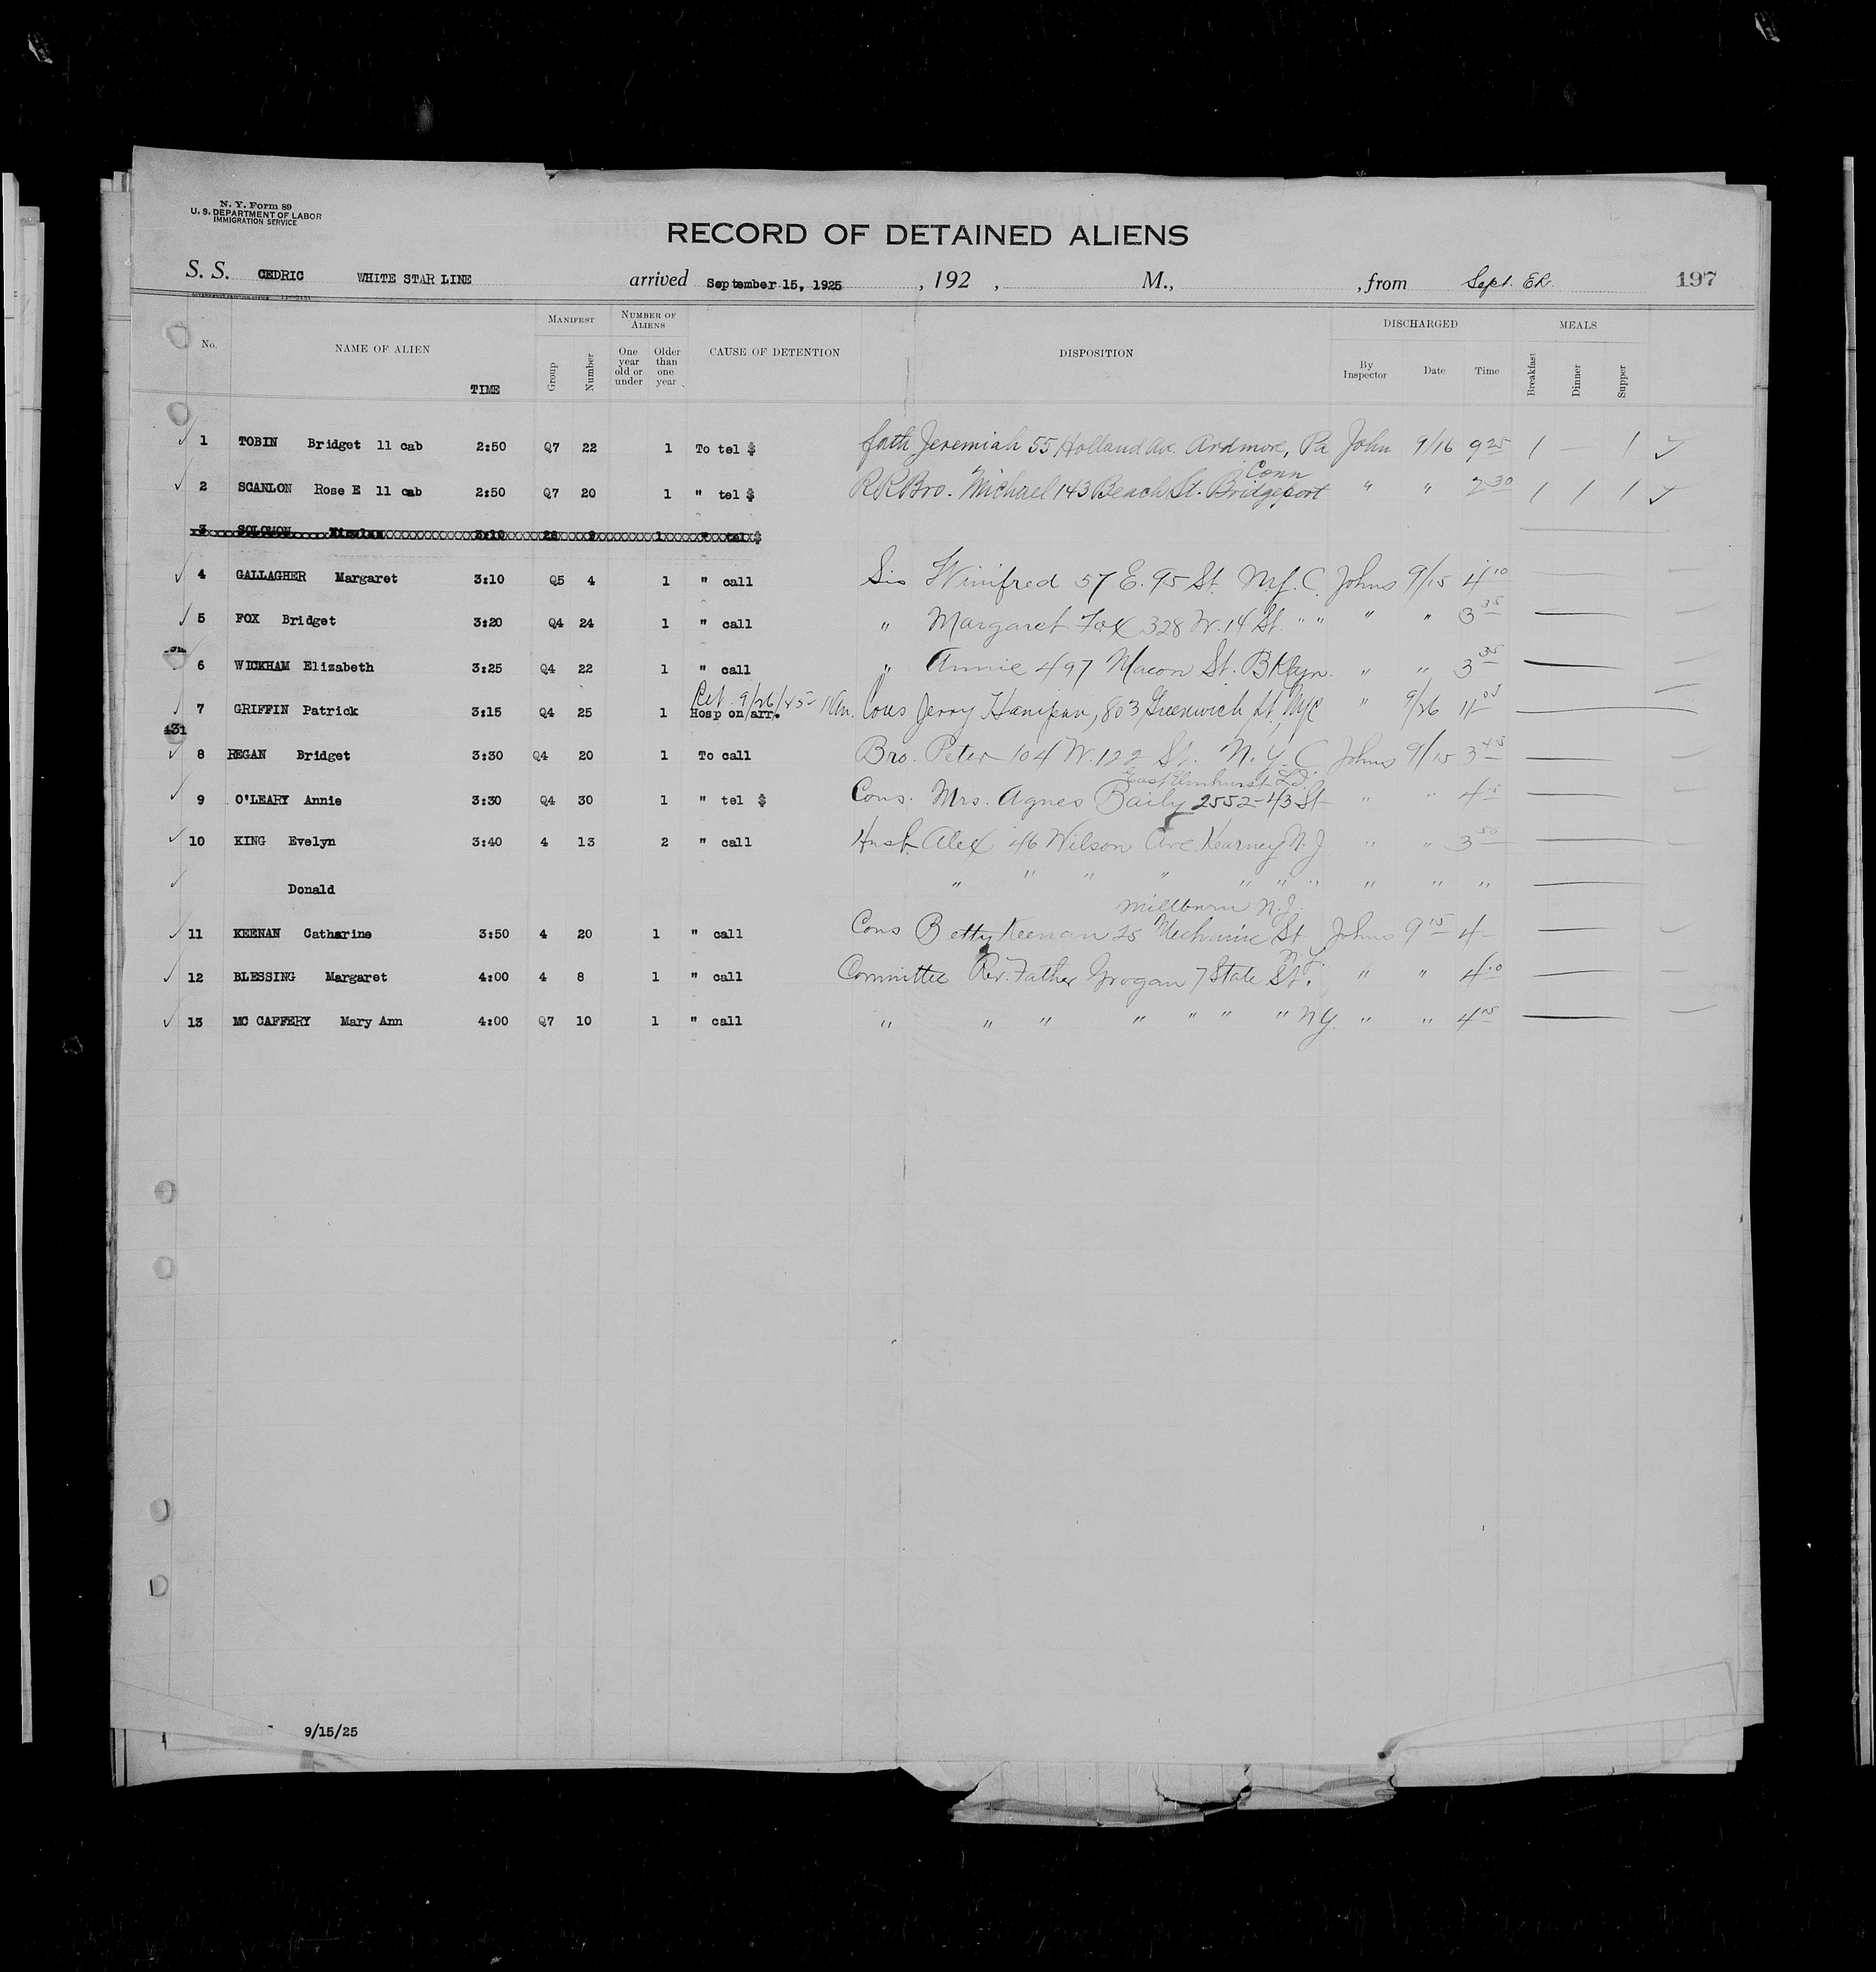 N. Y. Form 89
U. S. DEPARTMENT OF LABOR
IMMIGRATION SERVICE
RECORD OF DETAINED ALIENS
S. S. CEDRIC WHITE STAR LINE arrived September 15, 1925, 192 , M., , from Sept. 197
No. NAME OF ALIEN TIME MANIFEST Group Number NUMBER OF ALIENS One year old or under Older than one year CAUSE OF DETENTION DISPOSITION DISCHARGED By Inspector Date Time MEALS Breakfast Dinner Supper
1 TOBIN Bridget 11 cab 2:50 Q7 22 1 To tel $ fath Jeremiah 55 Holland Ave. Ardmore, Pa John 9/16 9 25 1 — 1 ✓
Conn
2 SCANLON Rose E 11 cab 2:50 Q7 20 1 " tel $ RR Bro. Michael 143 Beach St. Bridgeport " " 2 30 1 1 1 ✓
3 SOLOMON 3:10 28 9 1 " tel $
4 GALLAGHER Margaret 3:10 Q5 4 1 " call Sis Winifred 57 E. 95 St. N.Y.C. Johns 9/15 4 10
5 FOX Bridget 3:20 Q4 24 1 " call " Margaret Fox 328 W. 14 St. " " " " 3 35
6 WICKHAM Elizabeth 3:25 Q4 22 1 " call " Annie 497 Macon St. Bklyn. " " 3 35
Ret. 9/26/25 11 Am.
7 GRIFFIN Patrick 3:15 Q4 25 1 Hosp on arr. Cous Jerry Hanifan, 803 Greenwich St, NYC " 9/26 11 05
131
8 REGAN Bridget 3:30 Q4 20 1 To call Bro. Peter 104 W. 122 St. N.Y.C Johns 9/15 3 45
East Elmhurst L.I.
9 O'LEARY Annie 3:30 Q4 30 1 " tel $ Cons. Mrs. Agnes Baily 2552-43 St " " 4 15
10 KING Evelyn 3:40 4 13 2 " call Husb. Alex 46 Wilson Ave. Kearney N.J. " " 3 50
Donald " " " " " " " " " "
Millburn N.J.
11 KEENAN Catharine 3:50 4 20 1 " call Cons Betty Keenan 25 Mechanic St Johns 9 15 4
N.Y.
12 BLESSING Margaret 4:00 4 8 1 " call Committee Rev. Father Grogan 7 State St. " " 4 10
13 MC CAFFERY Mary Ann 4:00 Q7 10 1 " call " " " " " " " N.Y. " " 4 05
9/15/25